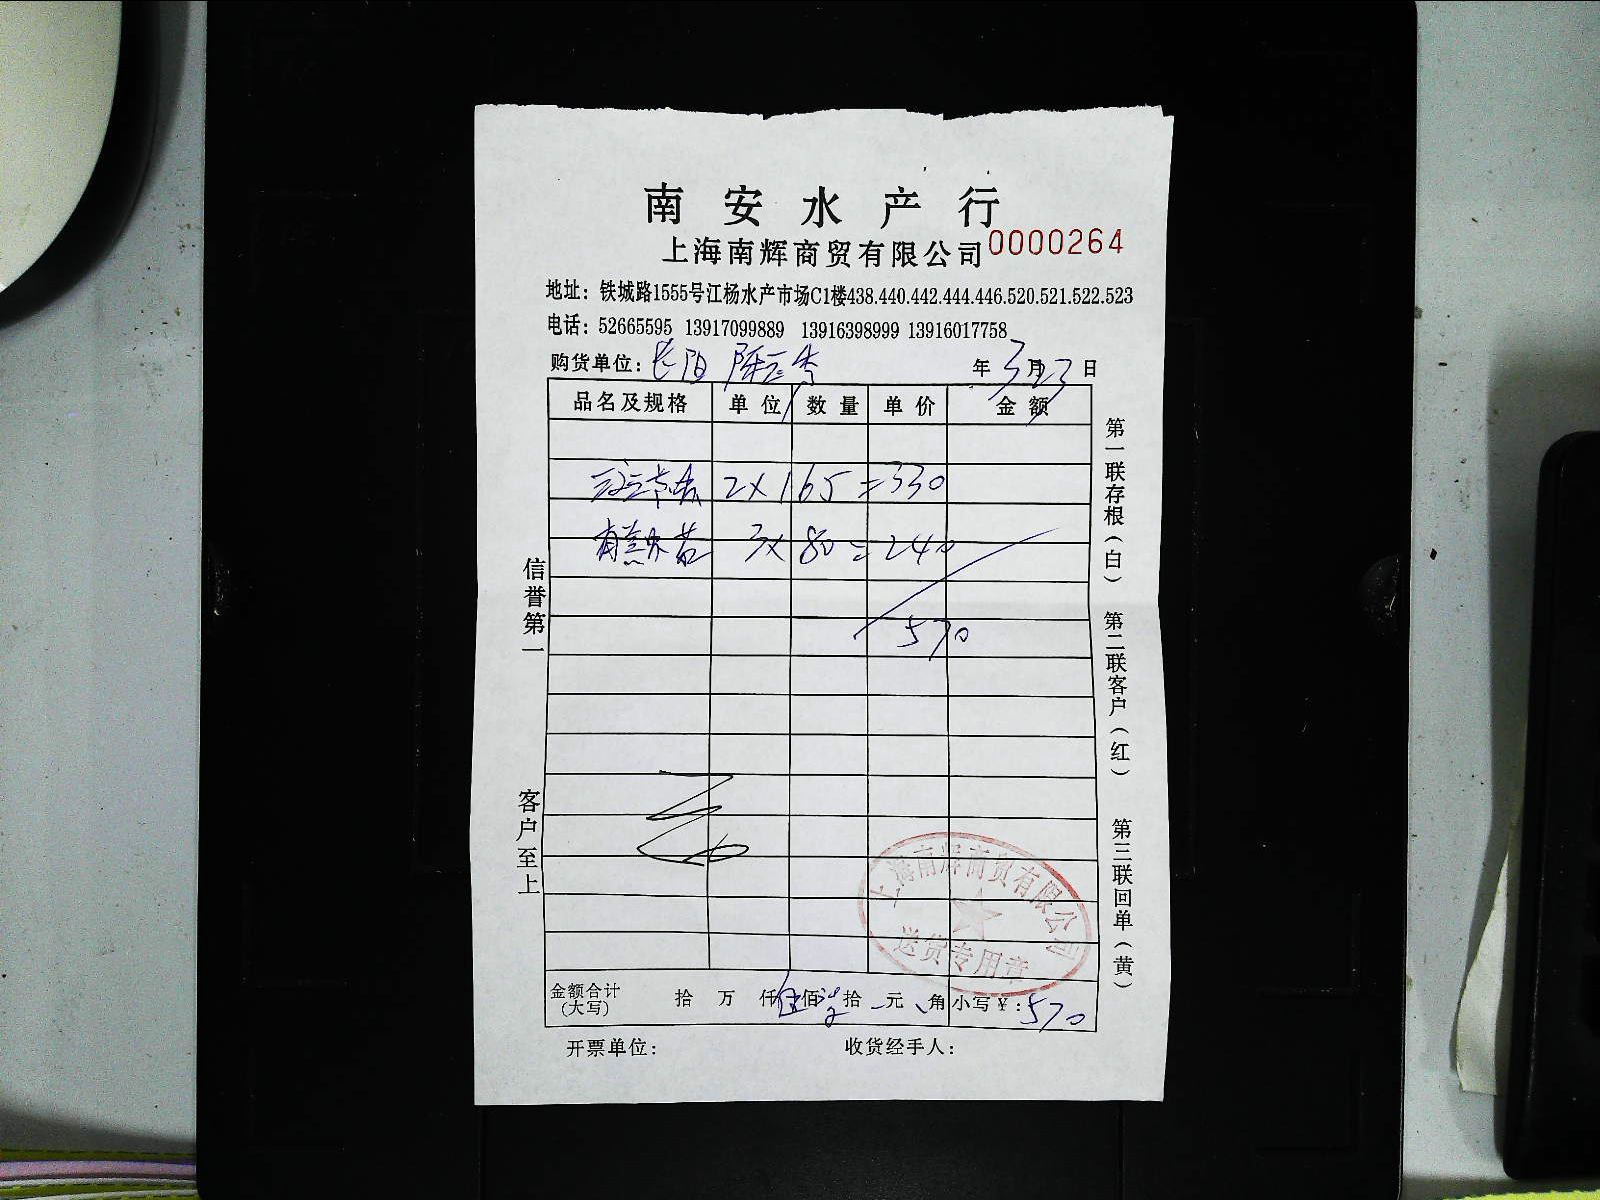 南安水产行
上海南辉商贸有限公司 0000264
地址：铁城路1555号江杨水产市场C1楼438.440.442.444.446.520.521.522.523
电话：52665595 13917099889 13916398999 13916017758
购货单位：长阳 年 3月23日
品名及规格 单位 数量 单价 金额
2×165=330
3×80=240
570
信誉第一
客户至上
第一联存根（白） 第二联客户（红） 第三联回单（黄）
上海南辉商贸有限公司
送货专用章
金额合计（大写） 拾 万 仟 伍佰柒拾 元 角 小写￥：570
开票单位： 收货经手人：